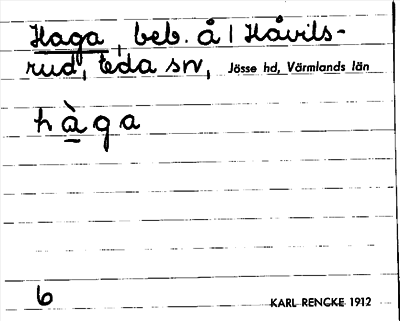 Haga, beb. å 1 Håvils-
rud, Eda sn, Jösse hd, Värmlands län
hàga
6
KARL RENCKE 1912